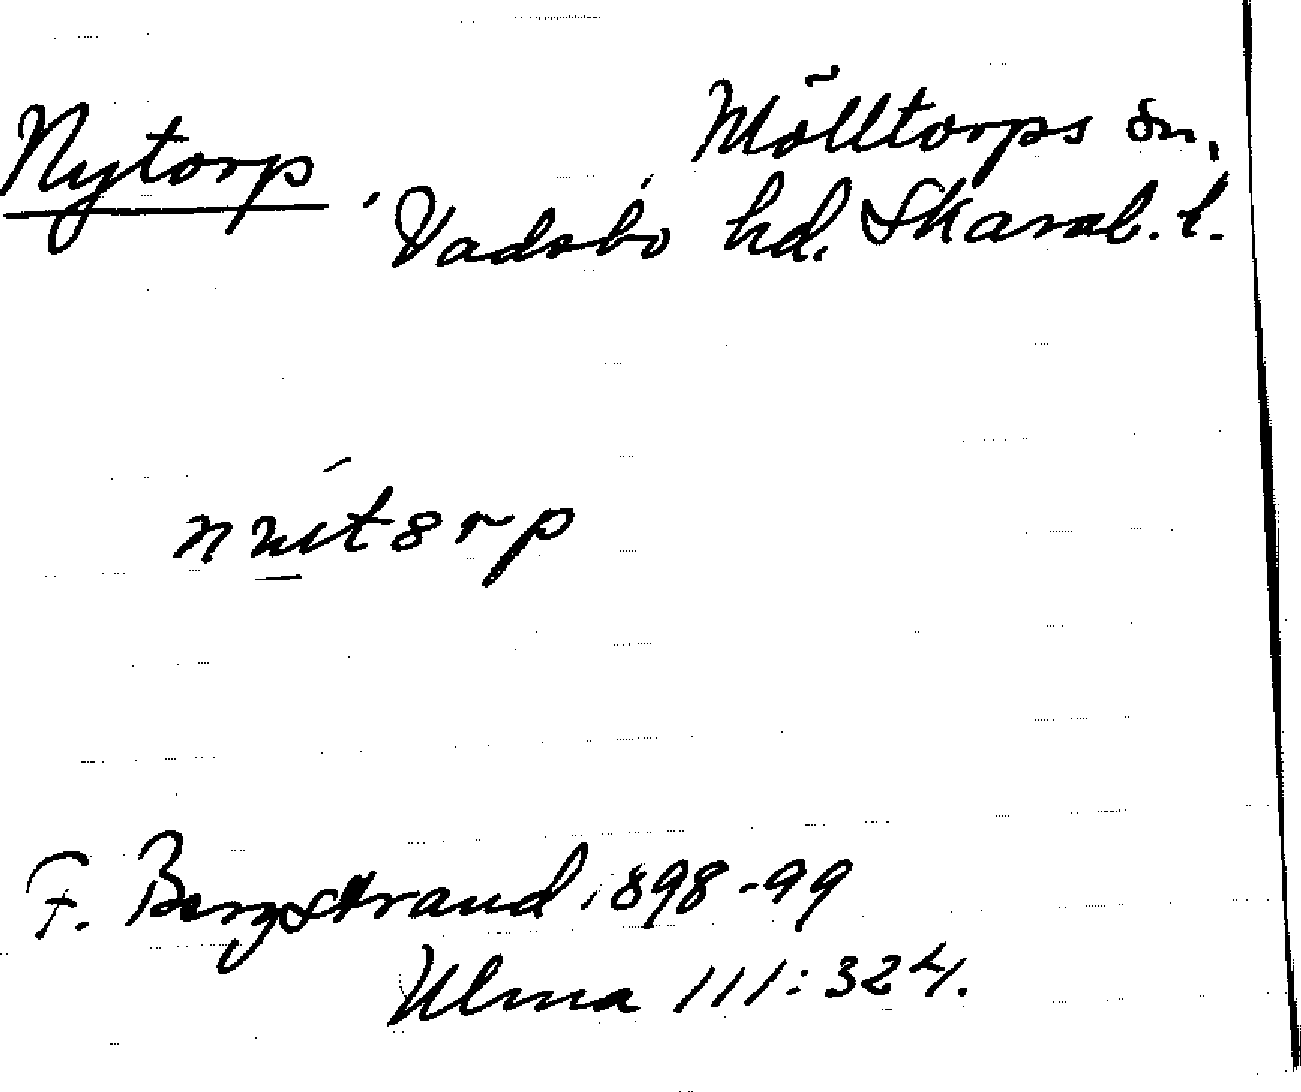 Nytorp
Mölltorps sn,
Vadsbo hd. Skarab. l.
F. Bergstrand 1898-99
Ulma 111:324.